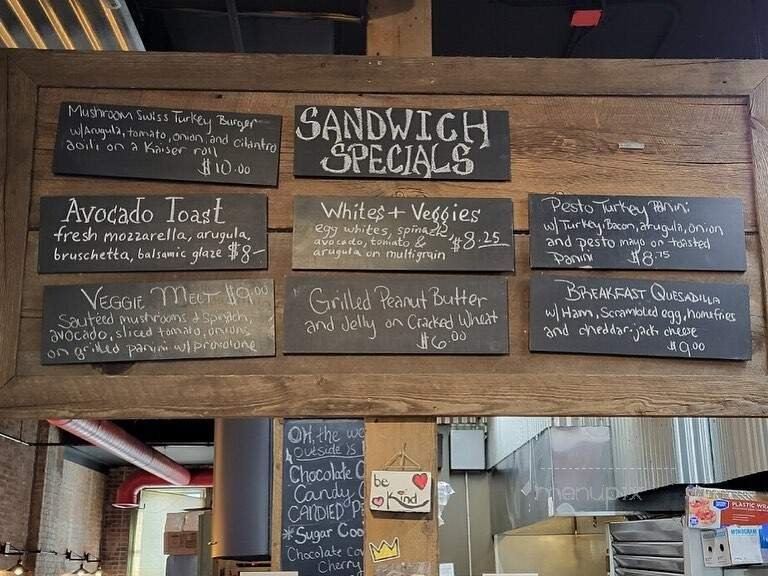 Mushroom Swiss Turkey Burger
w/Arugula, tomato, onion, and cilantro
aoili on a Kaiser roll
$10.00
SANDWICH
SPECIALS
Avocado Toast
fresh mozzarella, arugula,
bruschetta, balsamic glaze $8-
Whites + Veggies
egg whites, spinach,
avocado, tomato &
arugula on multigrain
$8.25
Pesto Turkey Panini
w/ Turkey, Bacon, arugula, onion
and pesto mayo on toasted
panini $8.75
Veggie Melt $9.00
Sauteed mushrooms & Spinach,
avocado, sliced tomato, onions
on grilled panini w/ provolone
Grilled Peanut Butter
and Jelly on Cracked Wheat
$6.00
BREAKFAST QUESADILLA
w/ Ham, Scrambled egg, homefries
and cheddar-jack cheese
$9.00
OH, the we
outside is
Chocolate C
Candy
CANDIED P
*Sugar Coo
Chocolate Cov
Cherry
be
Kind
menupix
PLASTIC WR
MONOGRAM